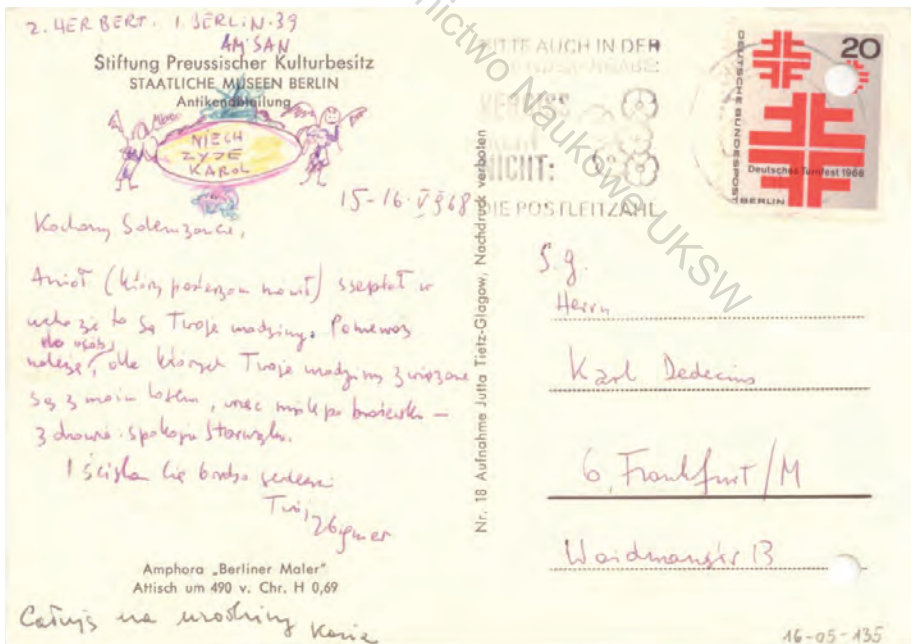 Z. HERBERT. 1 BERLIN. 39
AM SAN
Stiftung Preussischer Kulturbesitz
STAATLICHE MUSEEN BERLIN
Antikenabteilung
NIECH
ŻYJE
KAROL
15-16. V 968
Kochany
Anioł (który
ucho że to są Twoje urodziny. Ponieważ
do osób
należę, dla których Twoje urodziny związane
są z moim losem, więc
zdrowia spokoju
I ściskam Cię bardzo
Twój Zbigniew
Amphora „Berliner Maler"
Attisch um 490 v. Chr. H 0,69
Całuję na urodziny Kasia
Nr. 18 Aufnahme Jutta Tietz-Glagow, Nachdruck verboten
BITTE AUCH IN DER
VERGISS
BERLIN
NICHT:
DIE POSTLEITZAHL
DEUTSCHE BUNDESPOST
BERLIN
20
Deutsches Turnfest 1968
S. g.
Herrn
Karl Dedecius
6, Frankfurt/M
13
16-05-135
nictwo Naukowe UKSW